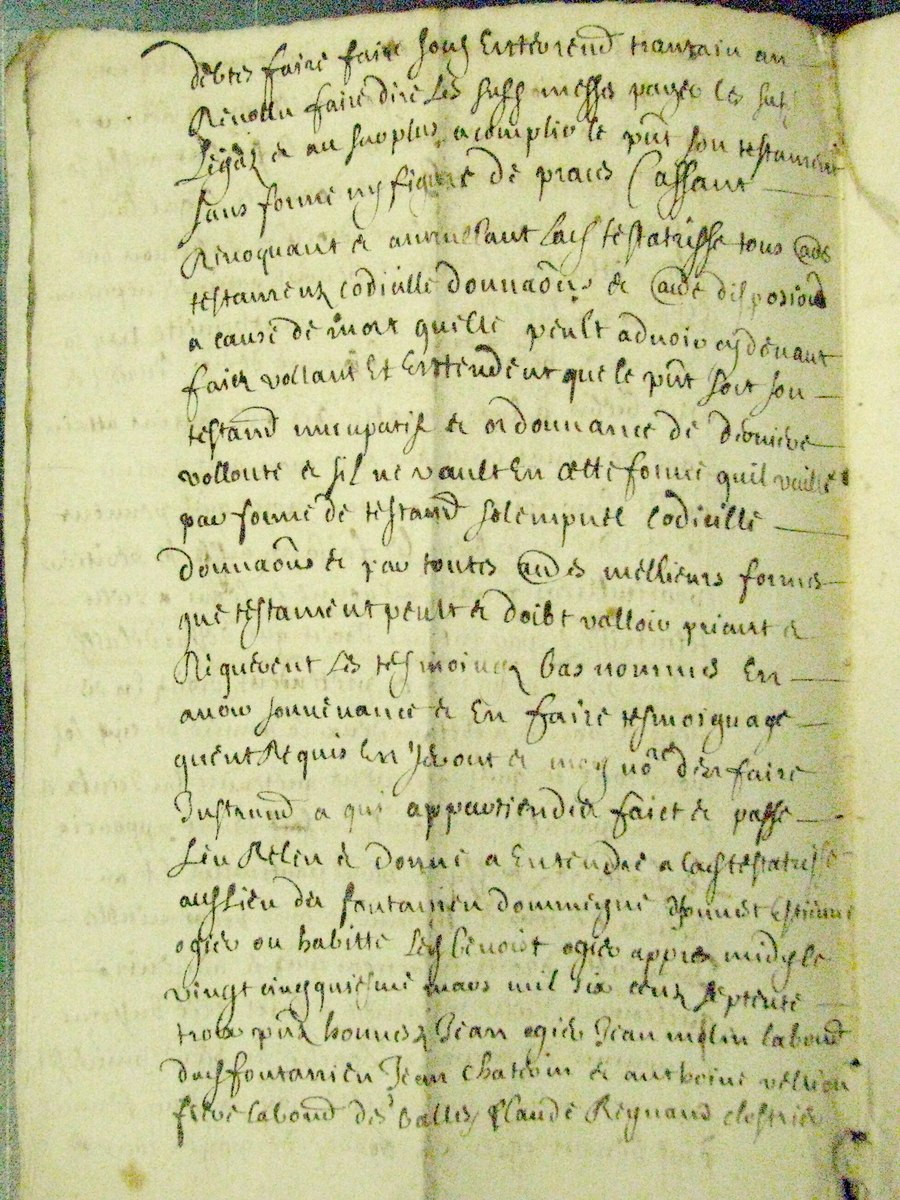 debtes faire faire sond enterrement trantain an
Revollu faire dire les susd messes payer les susd
Legaz & au surplus acomplir le pnt son testament
sans forme ny figure de proces Cassant
Revoquant & annullant lad testatrisse tous aues
testamens codicille donnaons & aue disposiond
a cause de mort quelle peult advoir cydevant
faict vollant Et Enttendent que le pnt soit son
testamd nuncupatif & ordonnance de derniere
vollonte & sil ne vault En cette forme quil vaille
par forme de testamd solempnel Codicille
donnaons & par toutes aues mellieurs formes
que testament peult & doibt valloir priant &
Requerent Les tesmoings bas nommes En
avoir souvenance & En faire tesmoignage
quent Requis En seront & moy nore den faire
Instrumd a qui appartiendra faict & passe
Leu Releu & donne a Entendre a lad testatrisse
aud Lieu de fontanien dommeyne Estienne
ogier ou habitte Led benoist ogier appres midy le
vingt cinquiesme mars mil six cens septente
trois pns honnes Jean ogier Jean molin labourd
dud fontanien Jean Chatroin & anthoine
frere labourd des balles Claude Reynaud clostrier